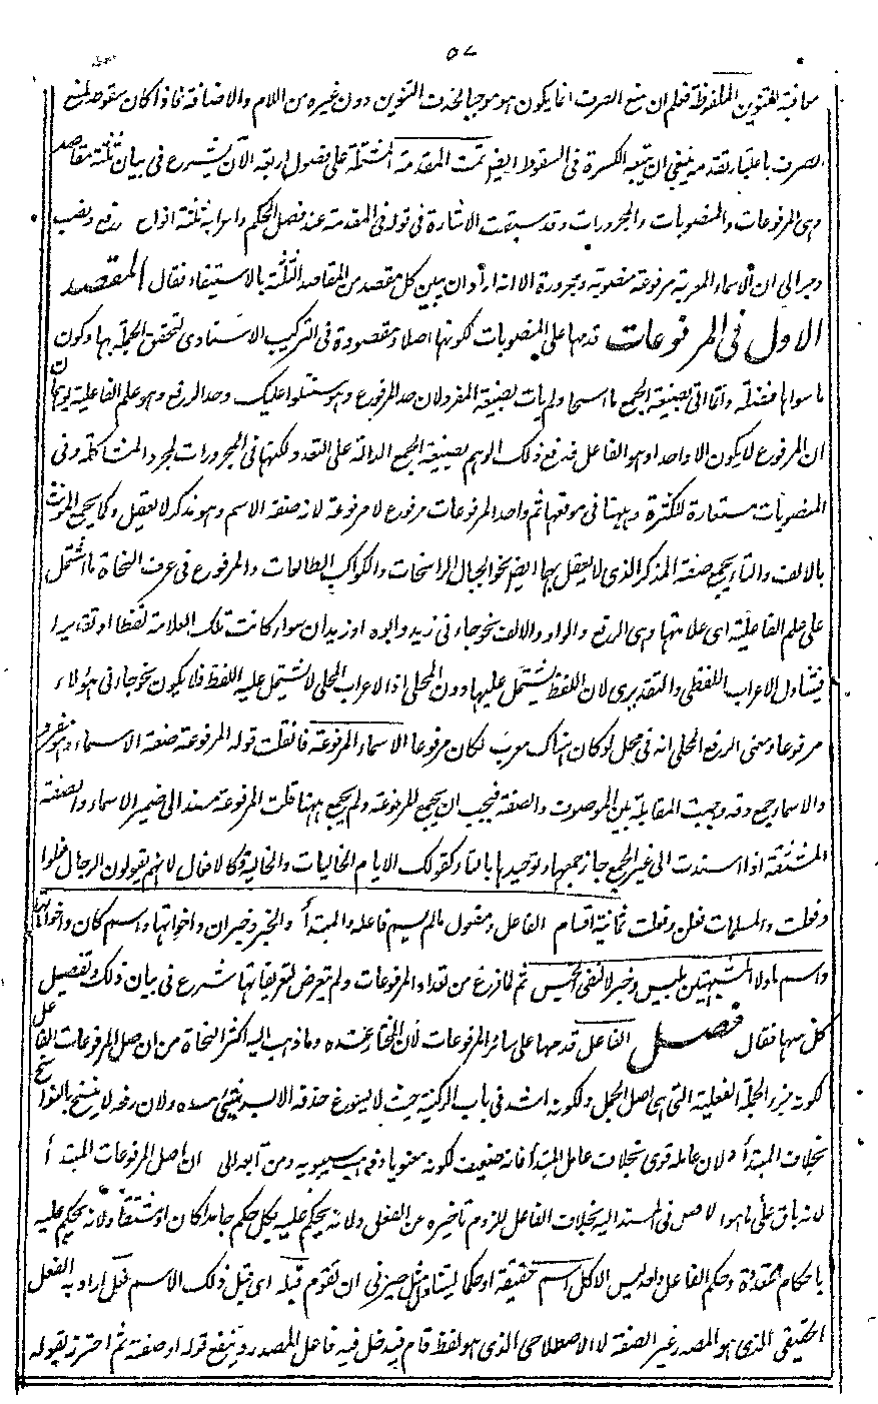 ٥٧
معاقبة للتنوين الملفوظة فعلم ان منع الصرف انما يكون هو موجبا لحذف التنوين دون غيره من اللام والاضافة فاذا كان سقوط لمنع
الصرف باعتبار تقدمه ينبغي ان يتبعه الكسرة في السقوط ايضا تمت المقدمة المشتملة على فصول اربعة الآن يشرع في بيان ثلثة مقاصد
وهي المرفوعات والمنصوبات والمجرورات وقد سبقت الاشارة في قوله في المقدمة عند فصل الحكم واعرابه ثلثة انواع رفع ونصب
وجر الى ان الاسماء المعربة مرفوعة منصوبة ومجرورة الا انه اراد ان يبين كل مقصد من المقاصد الثلثة بالاستيفاء فقال المقصد
الاول في المرفوعات قدمها على المنصوبات لكونها اصلا ومقصودة في التركيب الاسنادي لتحقق الجملة بها وكون
ما سواها فضلة وانما اتى بصيغة الجمع ولم يأت بصيغة المفرد لان حد المرفوع وهو ستتلوا عليك وحد الرفع وهو علم الفاعلية يوهمان
ان المرفوع لا يكون الا واحدا وهو الفاعل فدفع ذلك الوهم بصيغة الجمع الدالة على التعدد ولكنها في المجرورات لمجرد المشاكلة وفي
المنصوبات مستعارة للكثرة وههنا في موقعها ثم واحد المرفوعات مرفوع لا مرفوعة لانه صفة الاسم وهو مذكر لا يعقل وكما يجمع المؤنث
بالالف والتاء يجمع صفة المذكر الذي لا يعقل بهما ايضا نحو الجبال الراسخات والكواكب الطالعات والمرفوع في عرف النحاة ما اشتمل
على علم الفاعلية اى علامتها وهي الرفع والواو والالف نحو جاءني زيد وابوه او زيدان سواء كانت تلك العلامة لفظا او تقديرا
فيتناول الاعراب اللفظي والتقديري لان اللفظ يشتمل عليها دون المحلي اذ الاعراب المحلي لا يشتمل عليه اللفظ فلا يكون نحو جاءني هؤلاء
مرفوعا ومعنى الرفع المحلي انه في محل لو كان هناك معرب لكان مرفوعا الاسماء المرفوعة فان قلت قوله المرفوعة صفة الاسماء وهو مفرد
والاسماء جمع وقد وجبت المقابلة بين الموصوف والصفة فيجب ان يجمع المرفوعة ولم يجمع ههنا قلت المرفوعة مسند الى ضمير الاسماء والصفة
المشتقة اذا اسندت الى غير الجمع جاز جمعها وتوحيدها بالتاء كقولك الايام الخاليات والخالية وكالافعال لانهم يقولون الرجال فعلوا
وفعلت والمسلمات فعلن وفعلت ثمانية اقسام الفاعل ومفعول مالم يسم فاعله والمبتدأ والخبر وخبر ان واخواتها واسم كان واخواتها
واسم ما ولا المشبهتين بليس وخبر لا لنفي الجنس ثم لما فرغ من تعداد المرفوعات ولم يتعرض لتعريفاتها شرع في بيان ذلك وتفصيل
كل منها فقال فصل الفاعل قدمها على سائر المرفوعات لان المختار عنده وما ذهب اليه اكثر النحاة من ان اصل المرفوعات الفاعل
لكونه جزء الجملة الفعلية التي هي اصل الجمل ولكونه اشد في باب الركنية حيث لا يسوغ حذفه الا بسد شيء مسده ولان رفعه لا ينسخ بالنواسخ
بخلاف المبتدأ ولان عامله قوى بخلاف عامل المبتدأ فانه ضعيف لكونه معنويا وذهب سيبويه ومن تابعه الى ان اصل المرفوعات المبتدأ
لانه باق على ما هو الاصل في المسند اليه بخلاف الفاعل للزوم تأخيره عن الفعل ولانه يحكم عليه بكل حكم جامدا كان او مشتقا ولانه يحكم عليه
باحكام متعددة وحكم الفاعل واحد ليس الا كل اسم حقيقة او حكما ليتناول مثل ان تقوم قبله اى قبل ذلك الاسم فعل اراد به الفعل
الحقيقي الذي هو المصدر غير الصفة لا الاصطلاحي الذي هو لفظ قام فيدخل فيه فاعل المصدر وينفع قوله او صفة ثم احترز بقوله